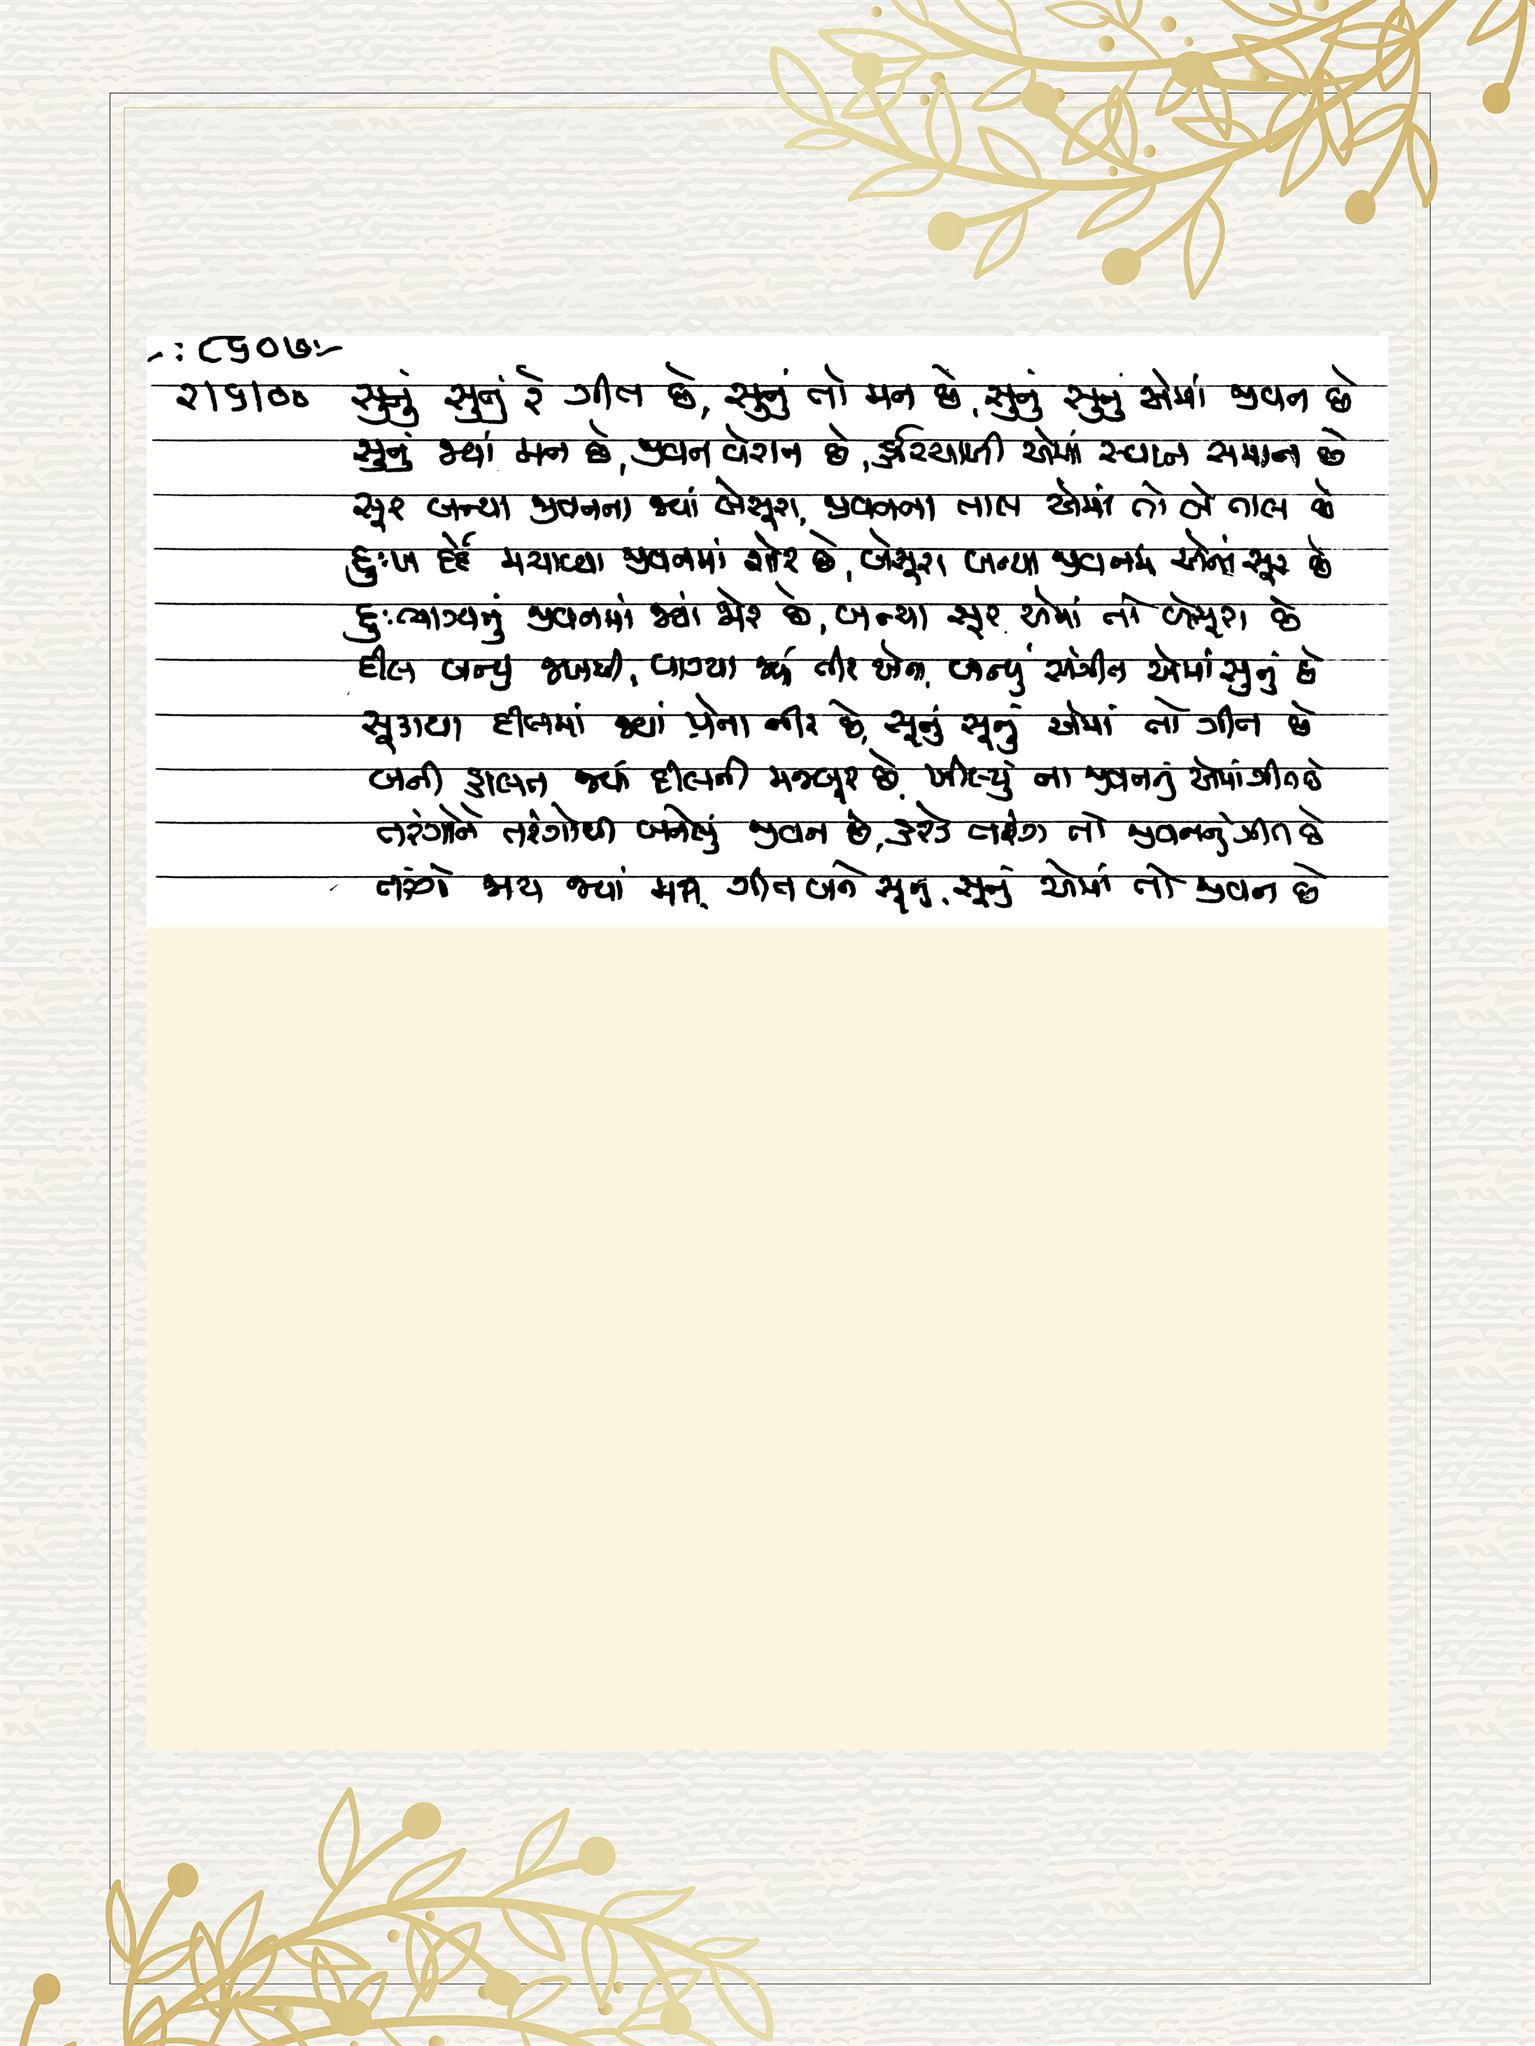 -: ૮૬૦૭:-
૨/૬/૦૦ સુનું સુનું રે ગીત છે, સુનું તો મન છે, સુનું સુનું એમાં જીવન છે
સુનું જ્યાં મન છે, જીવન વેરાન છે, હરિયાળી એમાં સ્વપ્ન સમાન છે
સૂર બન્યા જીવનના જ્યાં બેસૂરા, જીવનના તાલ એમાં તો બે તાલ છે
દુઃખ દર્દે મચાવ્યા જીવનમાં શોર છે, બેસૂરા બન્યા જીવનમાં એના સૂર છે
દુઃભાગ્યનું જીવનમાં જ્યાં જોર છે, બન્યા સૂર એમાં તો બેસૂરા છે
દીલ બન્યુ જખમી, વાગ્યા જ્યાં તીર એના, બન્યું સંગીત એમાં સુનું છે
સૂકાયા દીલમાં જ્યાં પ્રેમના નીર છે, સૂનું સૂનું એમાં તો ગીત છે
બની હાલત જ્યાં દીલની મજબૂર છે, ખીલ્યું ના જીવનનું એમાં ગીત છે
તરંગોને તરંગોથી બનેલું જીવન છે, હરેક તરંગ તો જીવનનું ગીત છે
તરંગો જાય જ્યાં ગીત બને સૂનું, સૂનું એમાં તો જીવન છે